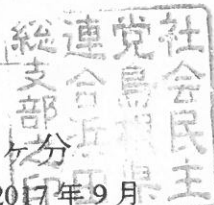 社会民主
党島根県
連合
総支部之印
ヶ分
2017年9月